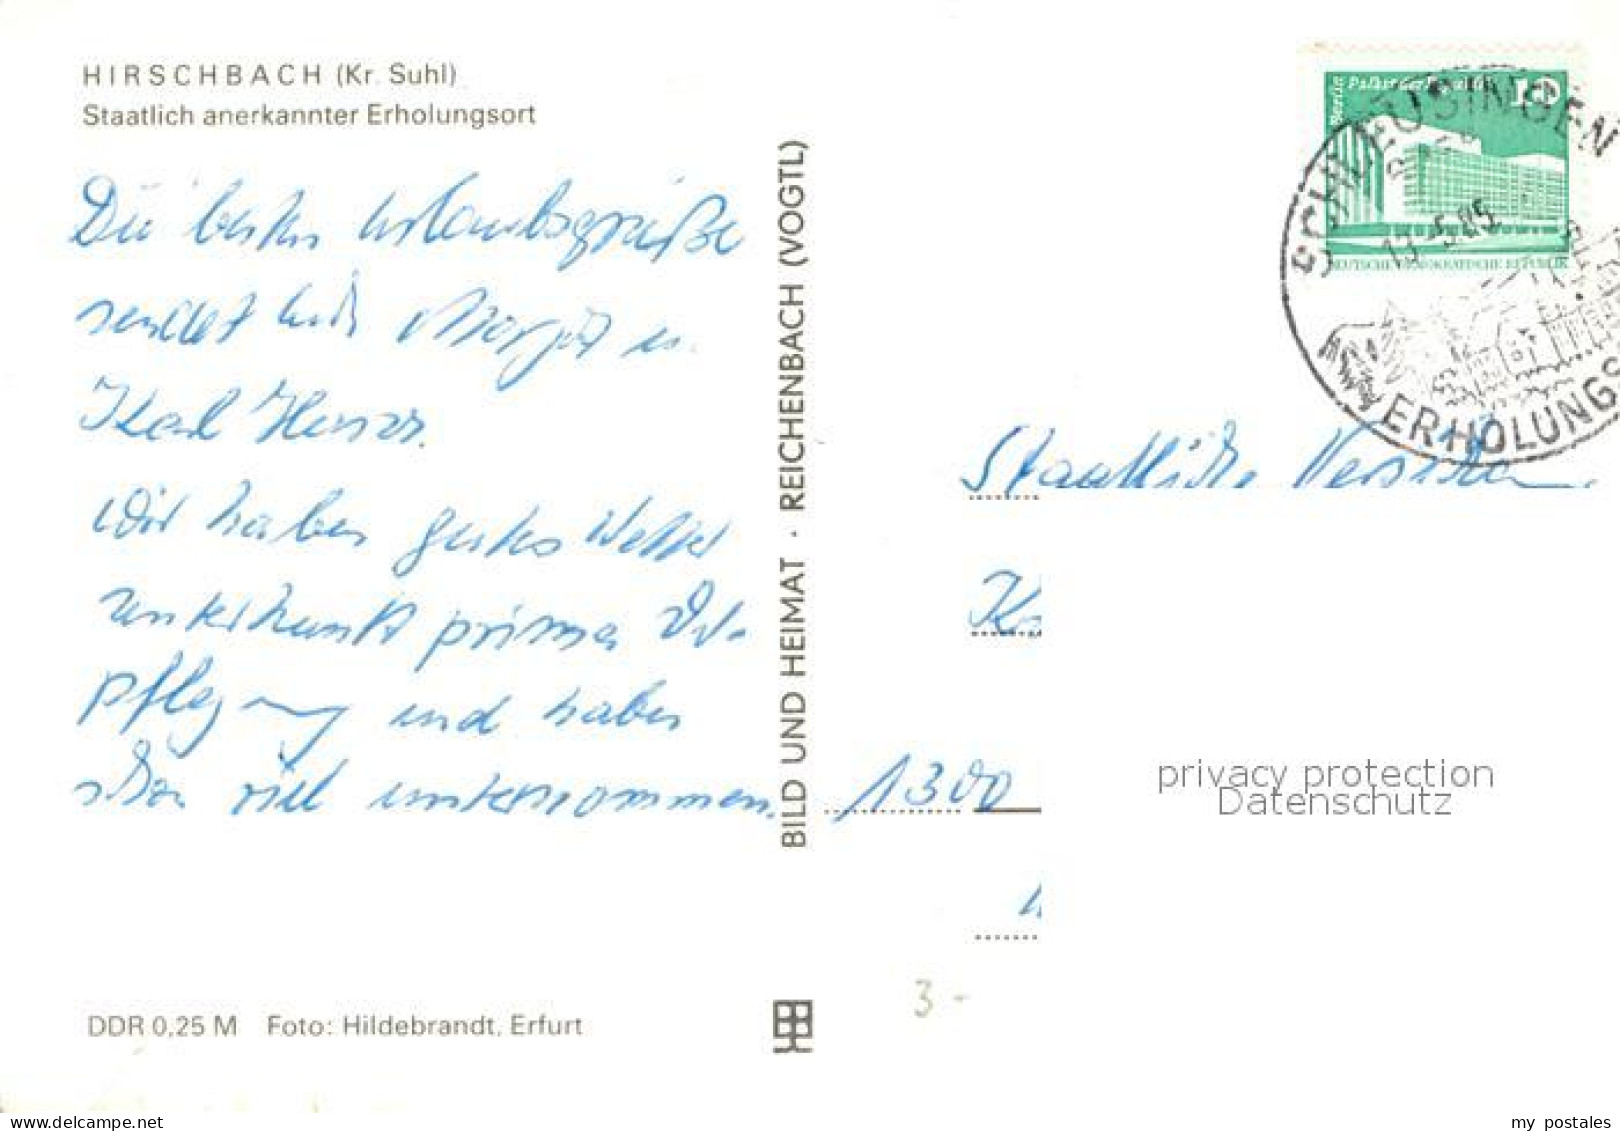 HIRSCHBACH (Kr. Suhl)
Staatlich anerkannter Erholungsort
Die besten Urlaubsgrüße
sendet Euch Margot u.
Karl Heinz.
Wir haben gutes Wetter
Unterkunft prima Ver-
pflegung und haben
schon viel unternommen.
BILD UND HEIMAT · REICHENBACH (VOGTL)
Berlin Palast der Republik 10
DEUTSCHE DEMOKRATISCHE REPUBLIK
SCHLEUSINGEN
13.-5.85
ERHOLUNGS
Staatliche
1300
privacy protection
Datenschutz
3-
DDR 0,25 M Foto: Hildebrandt, Erfurt
my postales